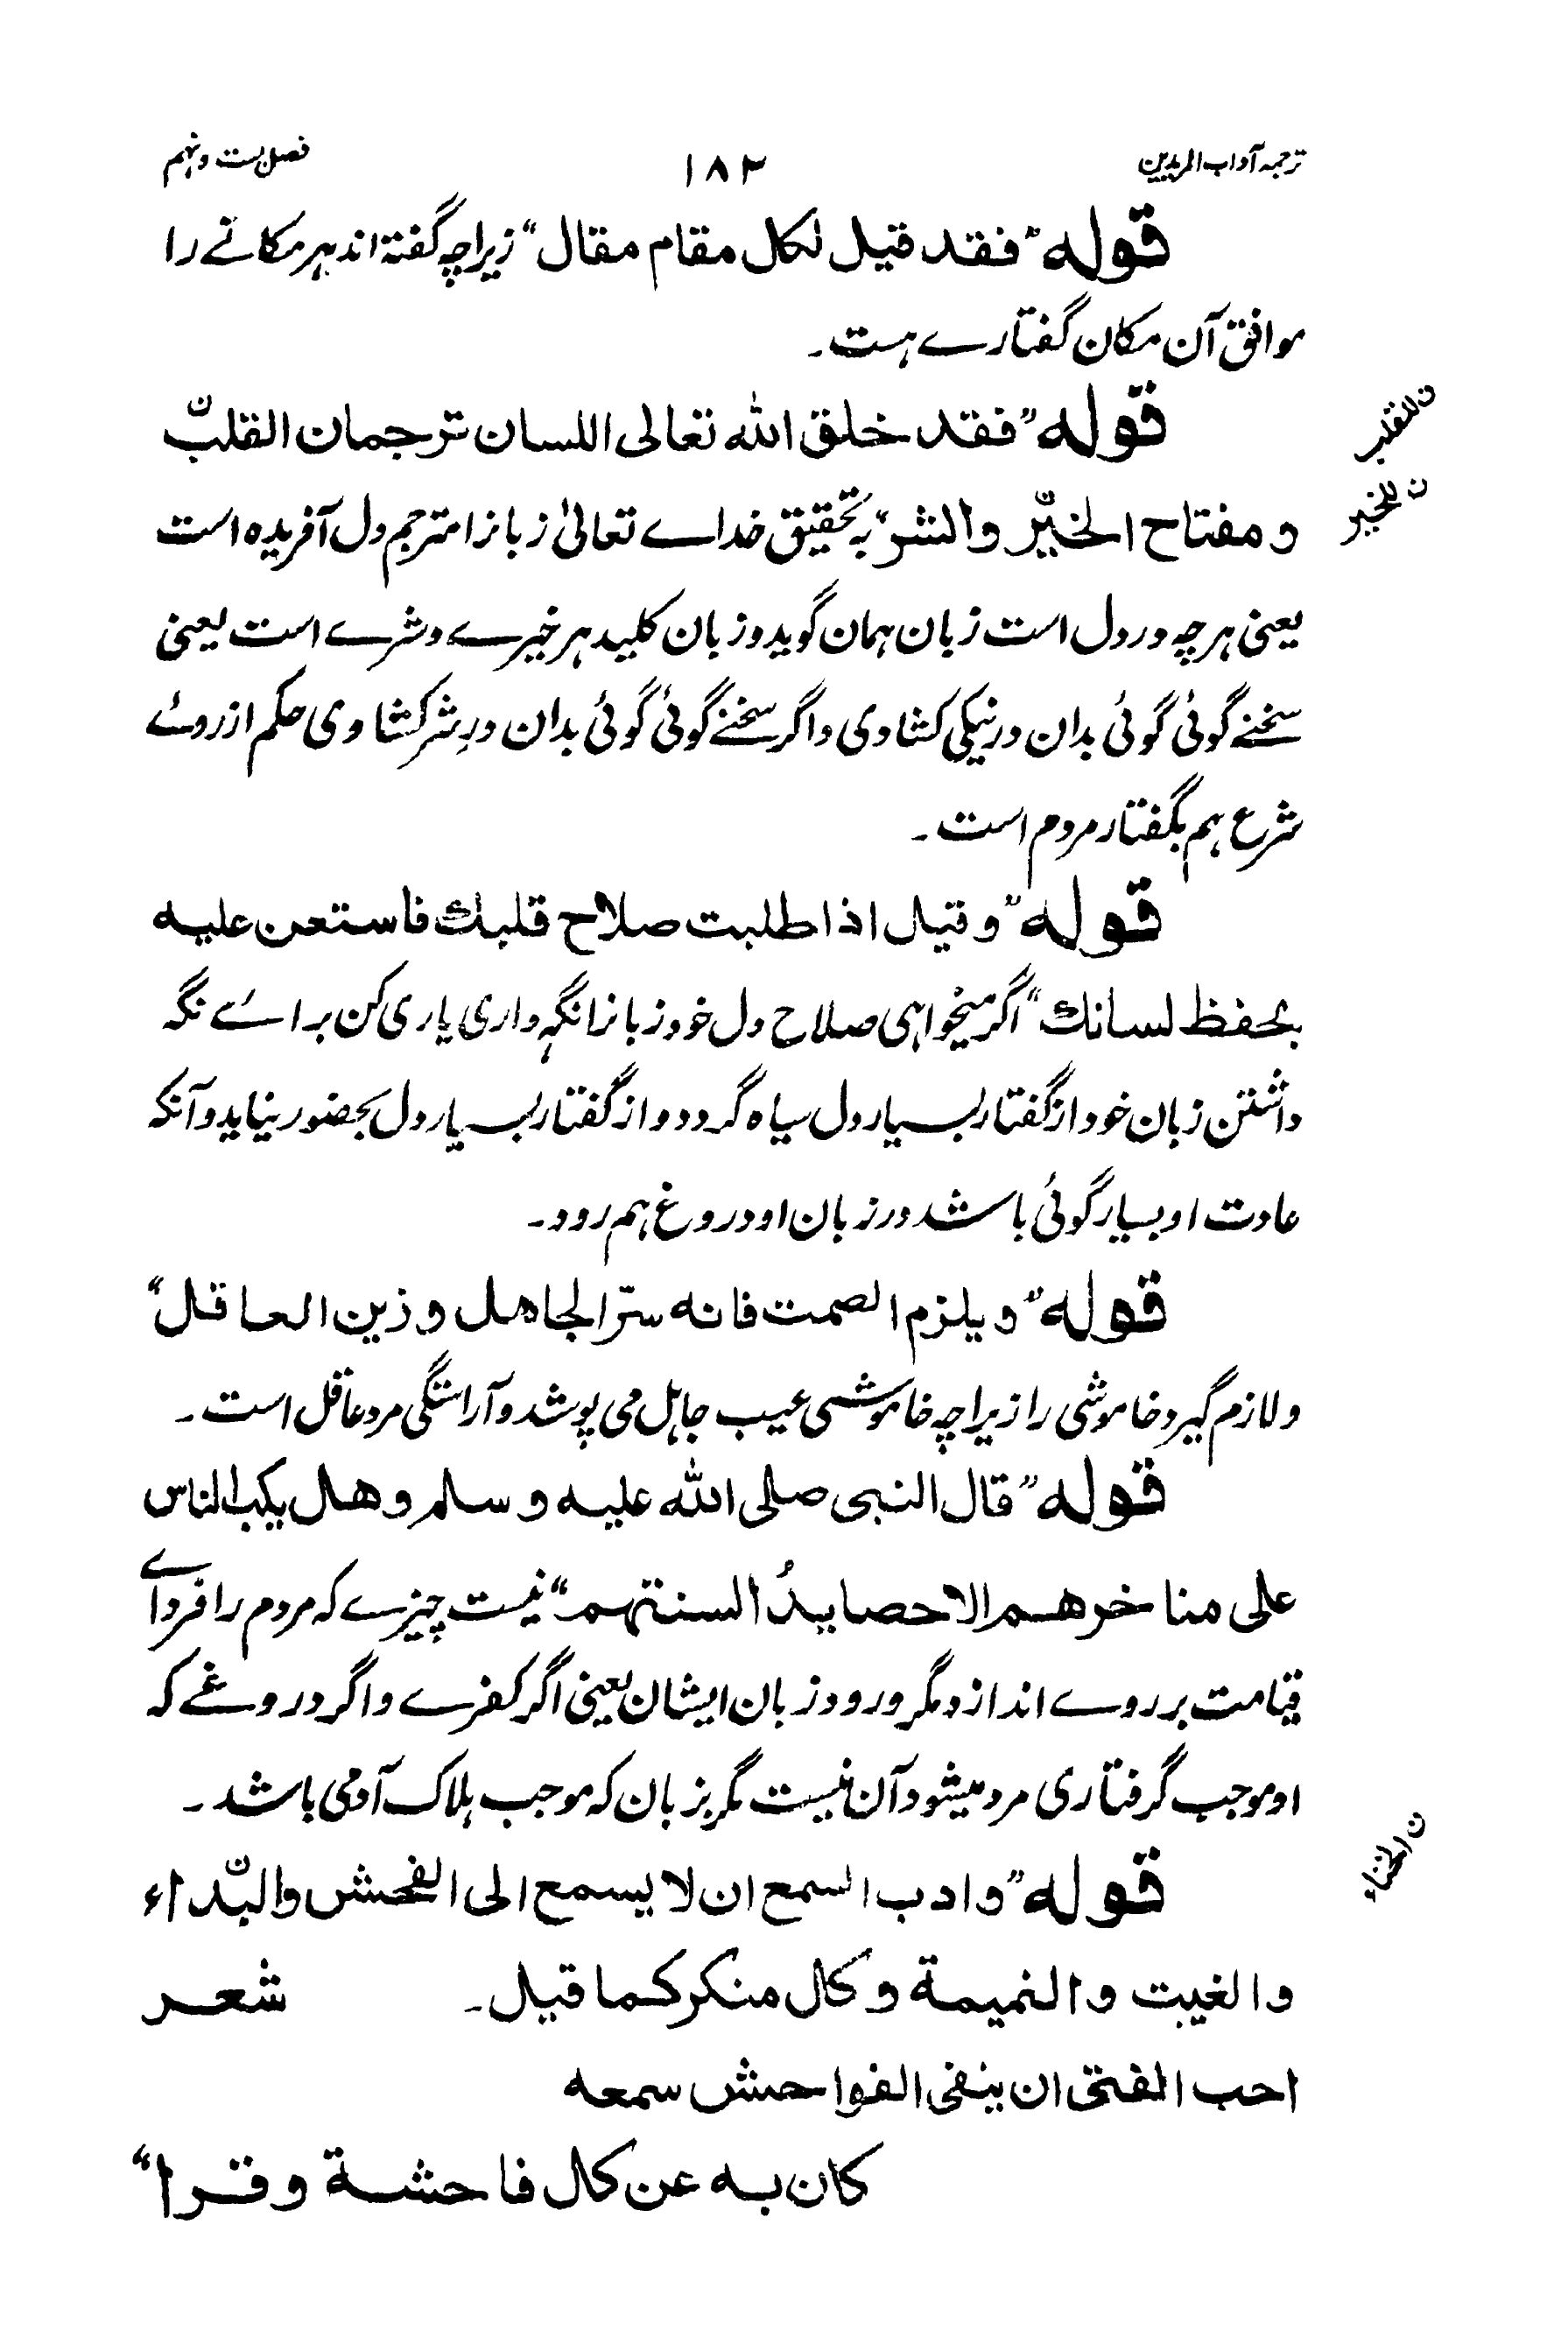 ترجمہ آداب المریدین ۱۸۲ فصل بست و نہم
قوله "فقد قيل لكل مقام مقال" زیراچہ گفتہ اند ہر مکانے را
موافق آن مکان گفتارے ہست۔
قوله "فقد خلق الله تعالى اللسان ترجمان القلبن
ن للقلب
ومفتاح الخيرن والشر" بہ تحقیق خداے تعالیٰ زبانرا مترجم دل آفریدہ است
ن للخير
یعنی ہرچہ در دل است زبان ہمان گوید و زبان کلید ہر خیرے و شرے است یعنی
سخنے گوئی گوئی بدان در نیکی کشادی و اگر سخنے گوئی گوئی بدان درِ شر کشادی حکم از روئے
شرع ہم بگفتار مردم است۔
قوله "وقيل اذا طلبت صلاح قلبك فاستعن عليه
بحفظ لسانك" اگر میخواہی صلاح دل خود زبانرا نگہداری یاری کن براے نگہ
داشتن زبان خود از گفتار بسیار دل سیاہ گردد و از گفتار بسیار دل بحضور نیاید و آنکہ
عادت او بسیار گوئی باشد در زبان او دروغ ہم رود۔
قوله "ويلزم الصمت فانه ستر الجاهل وزين العاقل"
و لازم گیرد خاموشی را زیراچہ خاموشی عیب جاہل می پوشد و آراستگی مرد عاقل است۔
قوله "قال النبى صلى الله عليه وسلم وهل يكب الناس
على مناخرهم الا حصايدُ السنتهم" نیست چیزے کہ مردم را فرداے
قیامت بر روے اندازد مگر درود زبان ایشان یعنی اگر کفرے و اگر دروغے کہ
او موجب گرفتاری مرد میشود آن نیست مگر بزبان کہ موجب ہلاک آدمی باشد۔
قوله "وادب السمع ان لا يسمع الى الفحش والبذاءن
ن الخناء
والغيبت والنميمة وكل منكر كما قيل۔ شعر
احب الفتى ان ينفى الفواحش سمعه
كان به عن كل فاحشة وقرا"